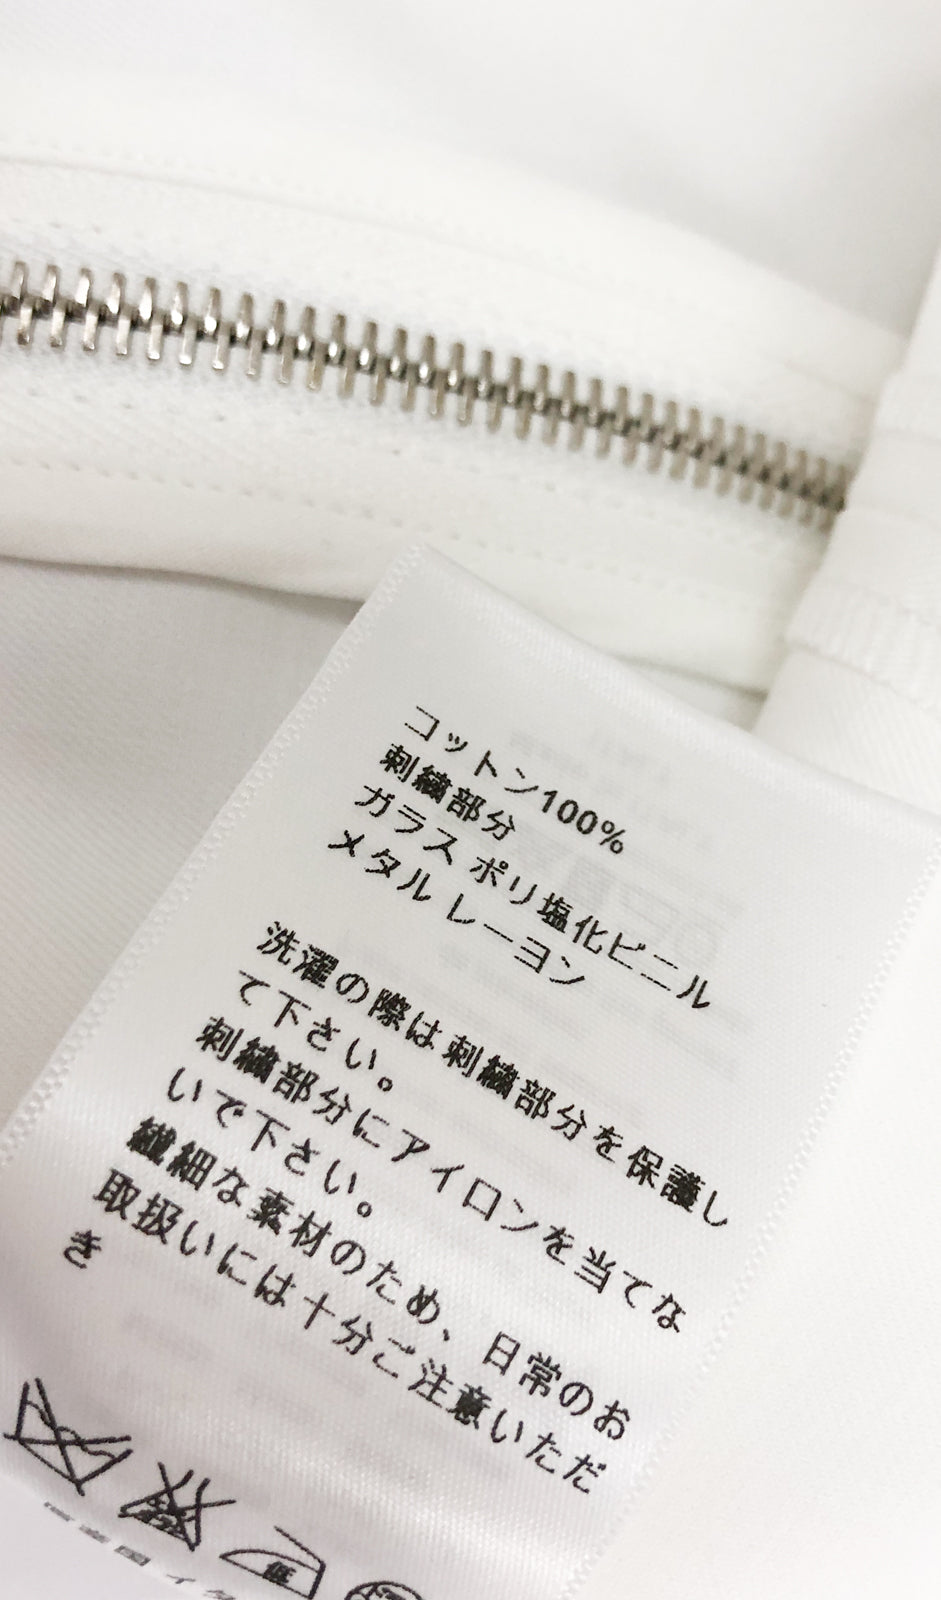 コットン100%
刺繍部分
ガラス ポリ塩化ビニル
メタル レーヨン
洗濯の際は刺繍部分を保護し
て下さい。
刺繍部分にアイロンを当てな
いで下さい。
繊細な素材のため、日常のお
取扱いには十分ご注意いただ
き
低